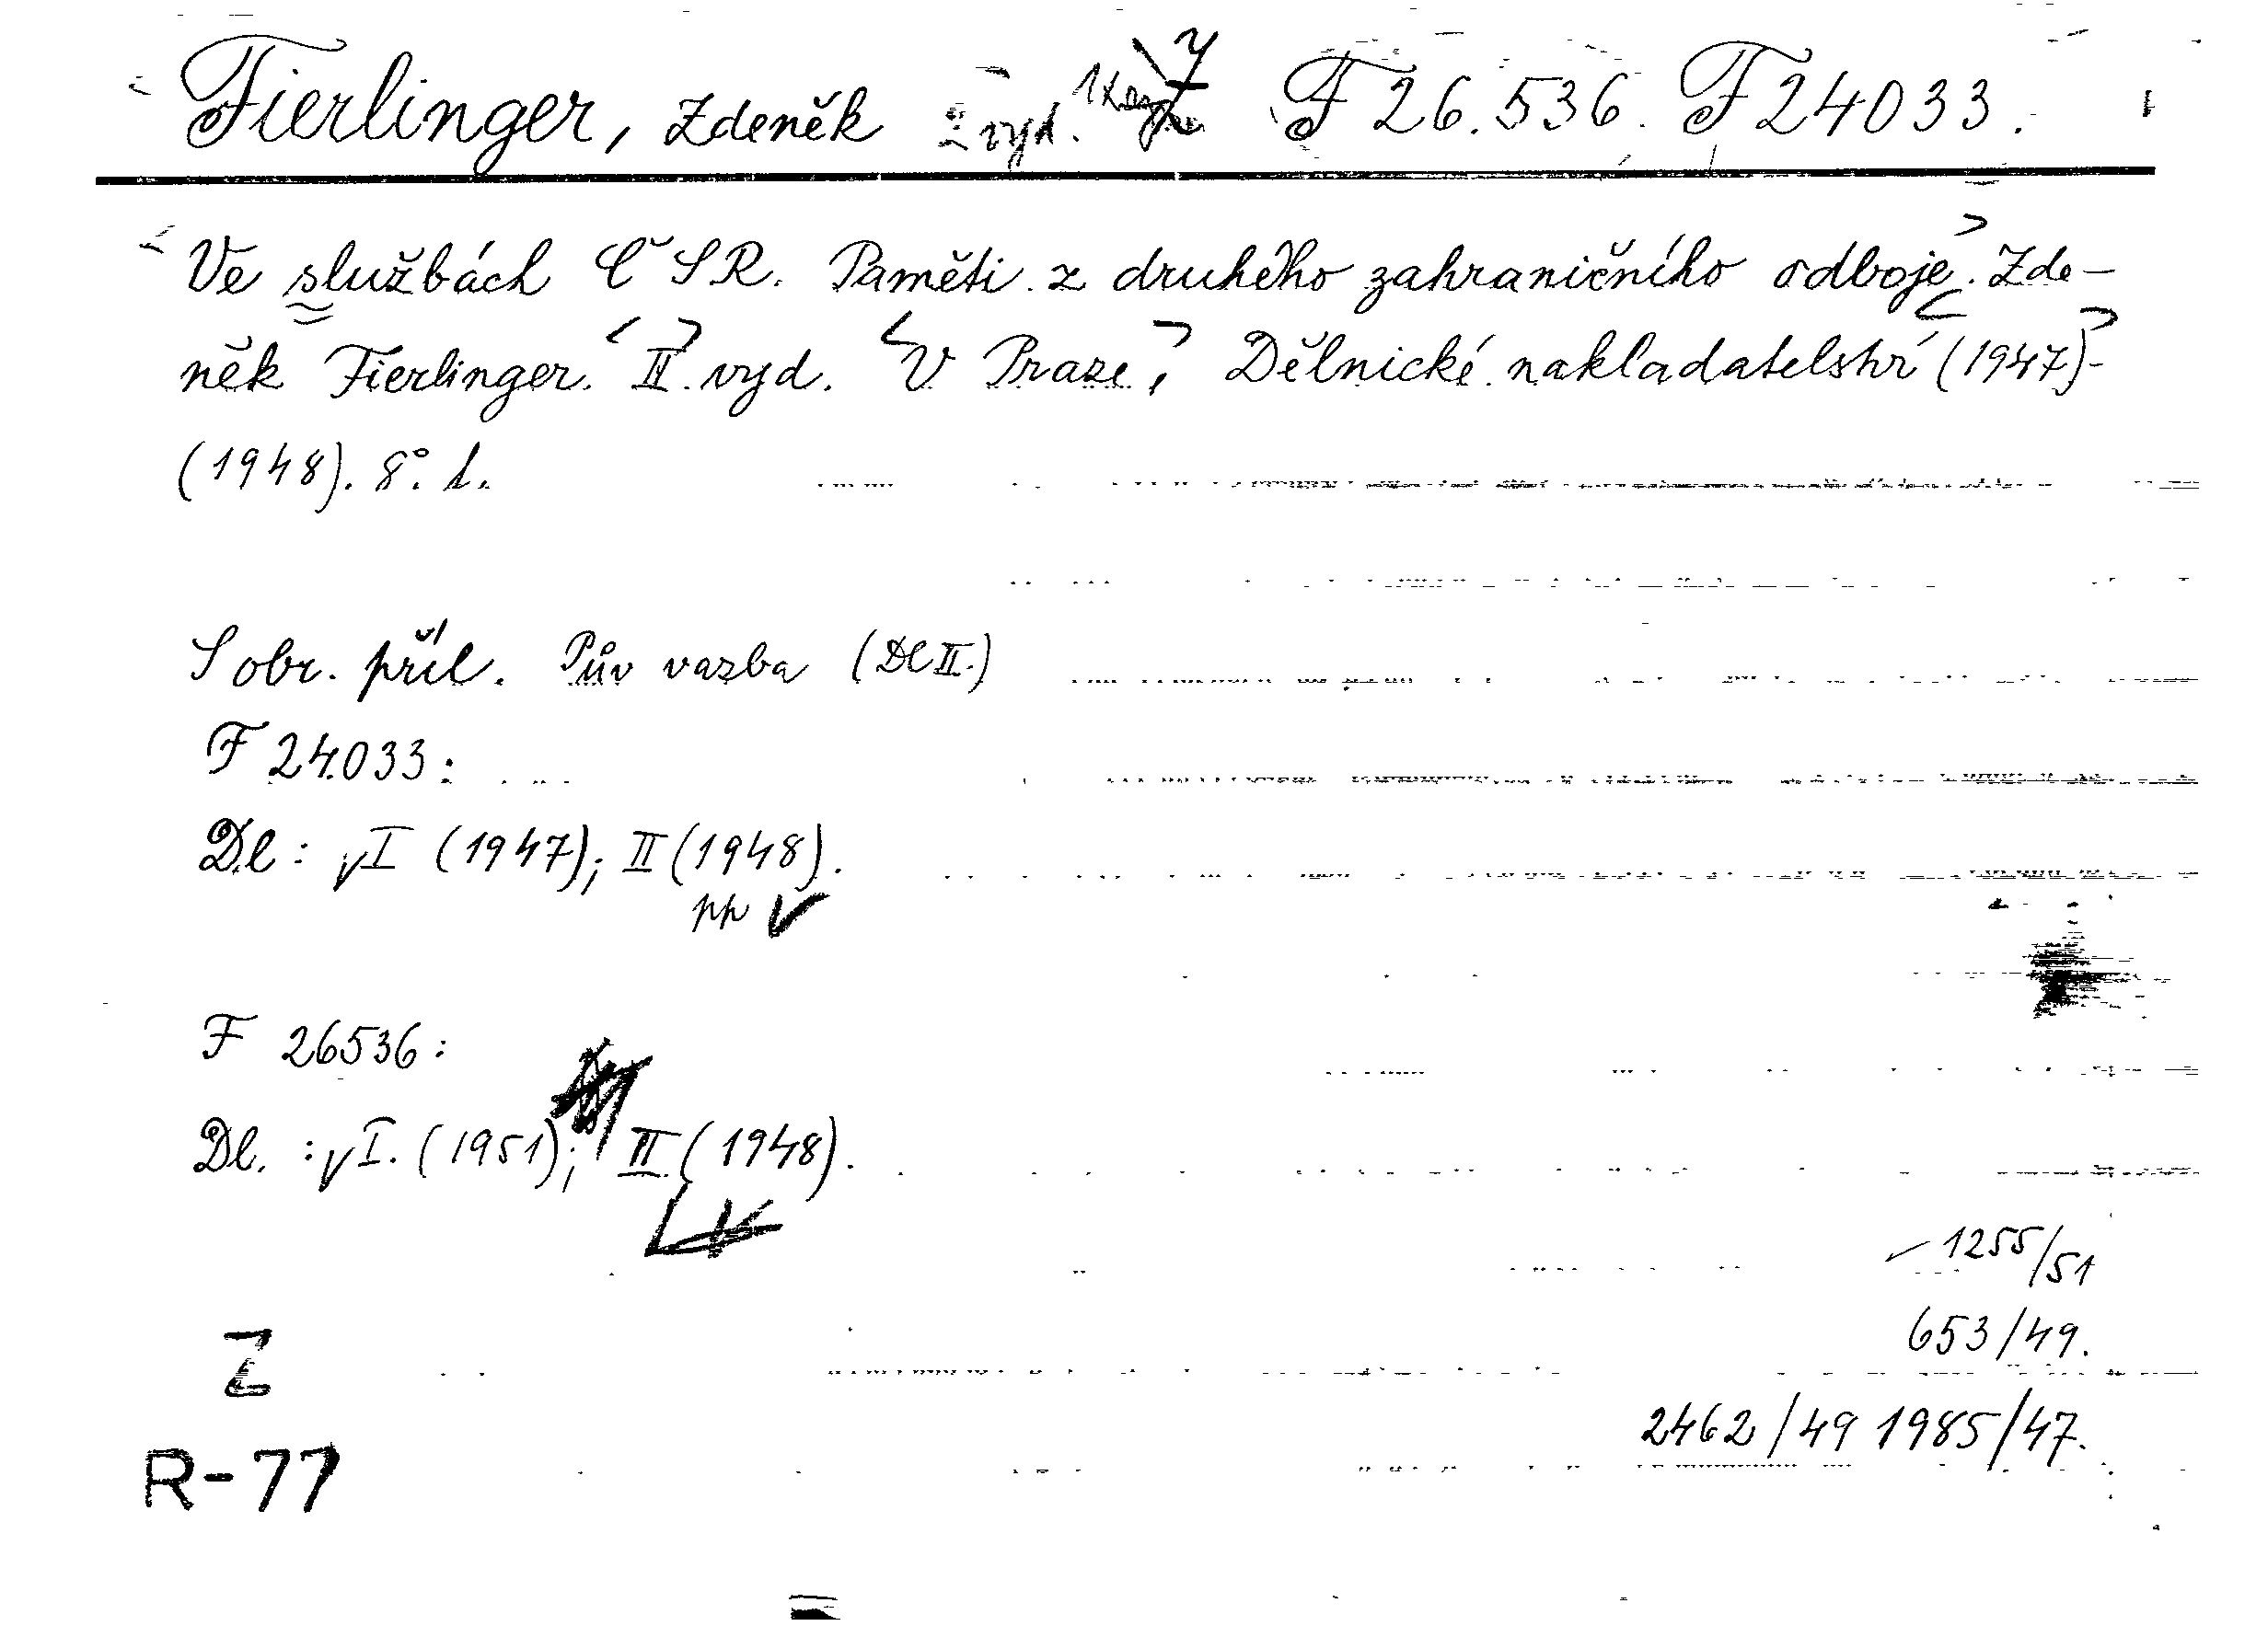 Fierlinger, Zdeněk 2 vyd. F 26.536. F 24033.
Ve službách ČSR. Paměti z druhého zahraničního odboje. Zde-
něk Fierlinger. II. vyd. V Praze, Dělnické nakladatelství (1947)-
(1948). 8°. l.
S obr. příl. Pův vazba (Dl II.)
F 24.033:
Dl: I (1947); II (1948).
F 26536:
Dl. : I. (1951); II. (1948).
1255/51
653/49.
Z
2462/49 1985/47.
R-77